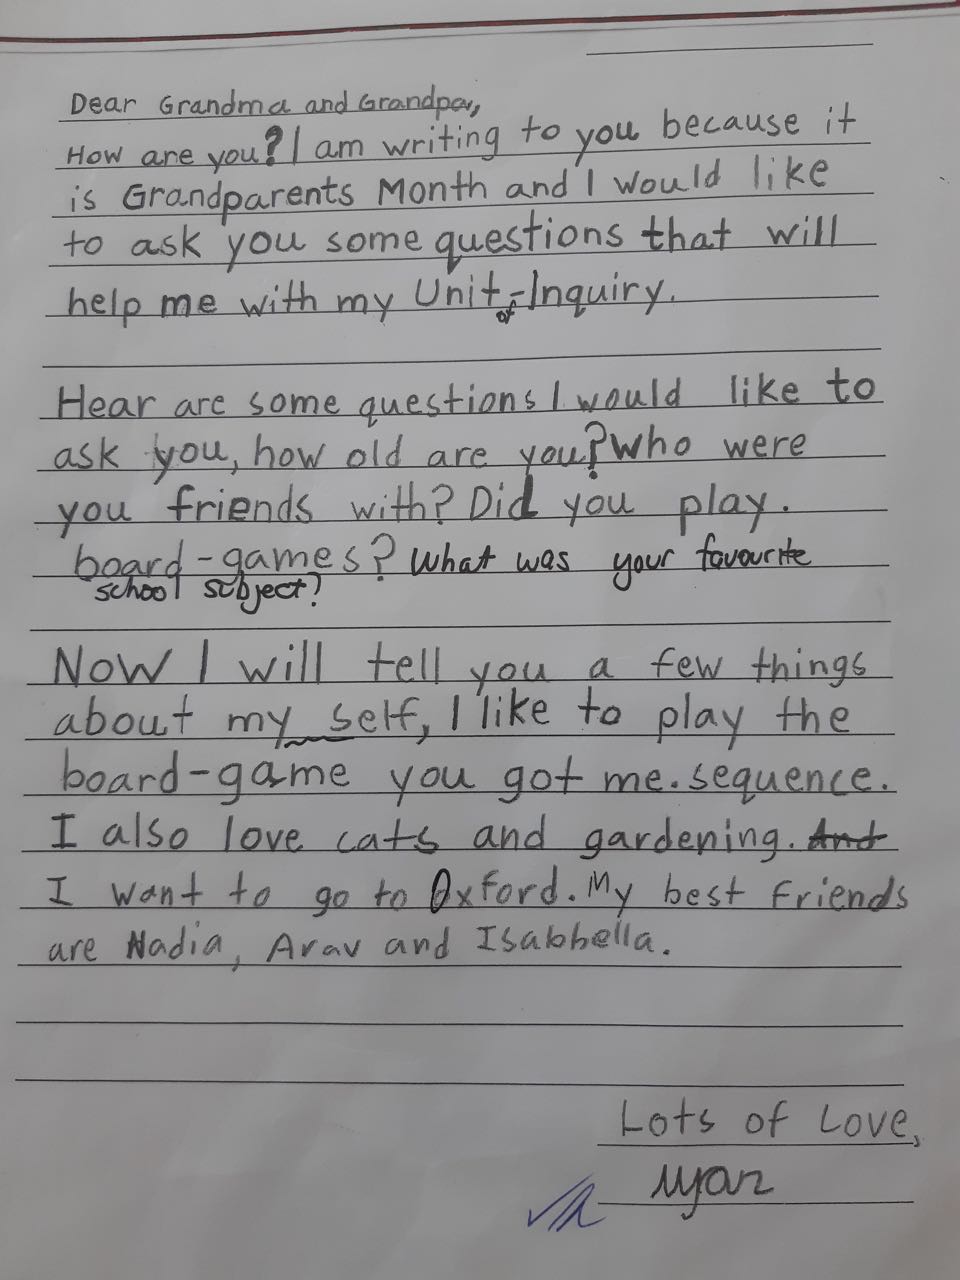 Dear Grandma and Grandpa,
How are you? I am writing to you because it
is Grandparents Month and I would like
to ask you some questions that will
help me with my Unit-of-Inquiry.
Hear are some questions I would like to
ask you, how old are you? Who were
you friends with? Did you play.
board-games? What was your favourite
school subject?
Now I will tell you a few things
about my self, I like to play the
board-game you got me. sequence.
I also love cats and gardening. And
I want to go to Oxford. My best friends
are Nadia, Arav and Isabbella.
Lots of Love,